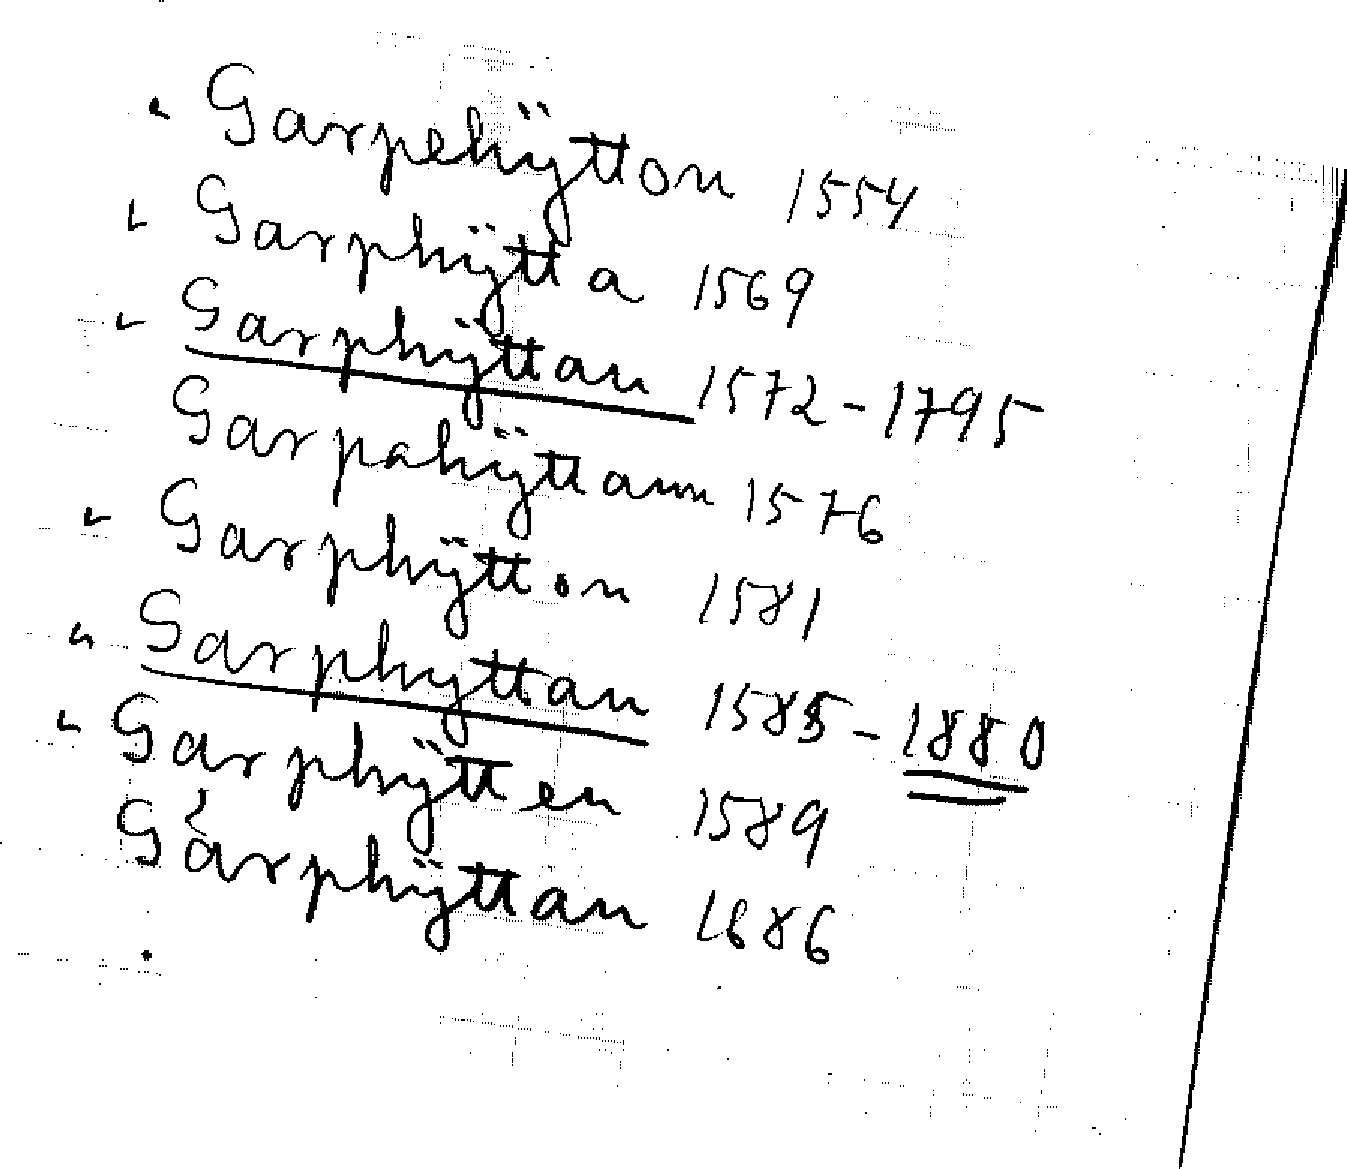 Garpehÿtton 1554
Garphÿtta 1569
Garphÿttan 1572-1795
Garpahÿttann 1576
Garphÿtton 1581
Garphyttan 1585-1880
Garphÿtten 1589
Gárphÿttan 1686